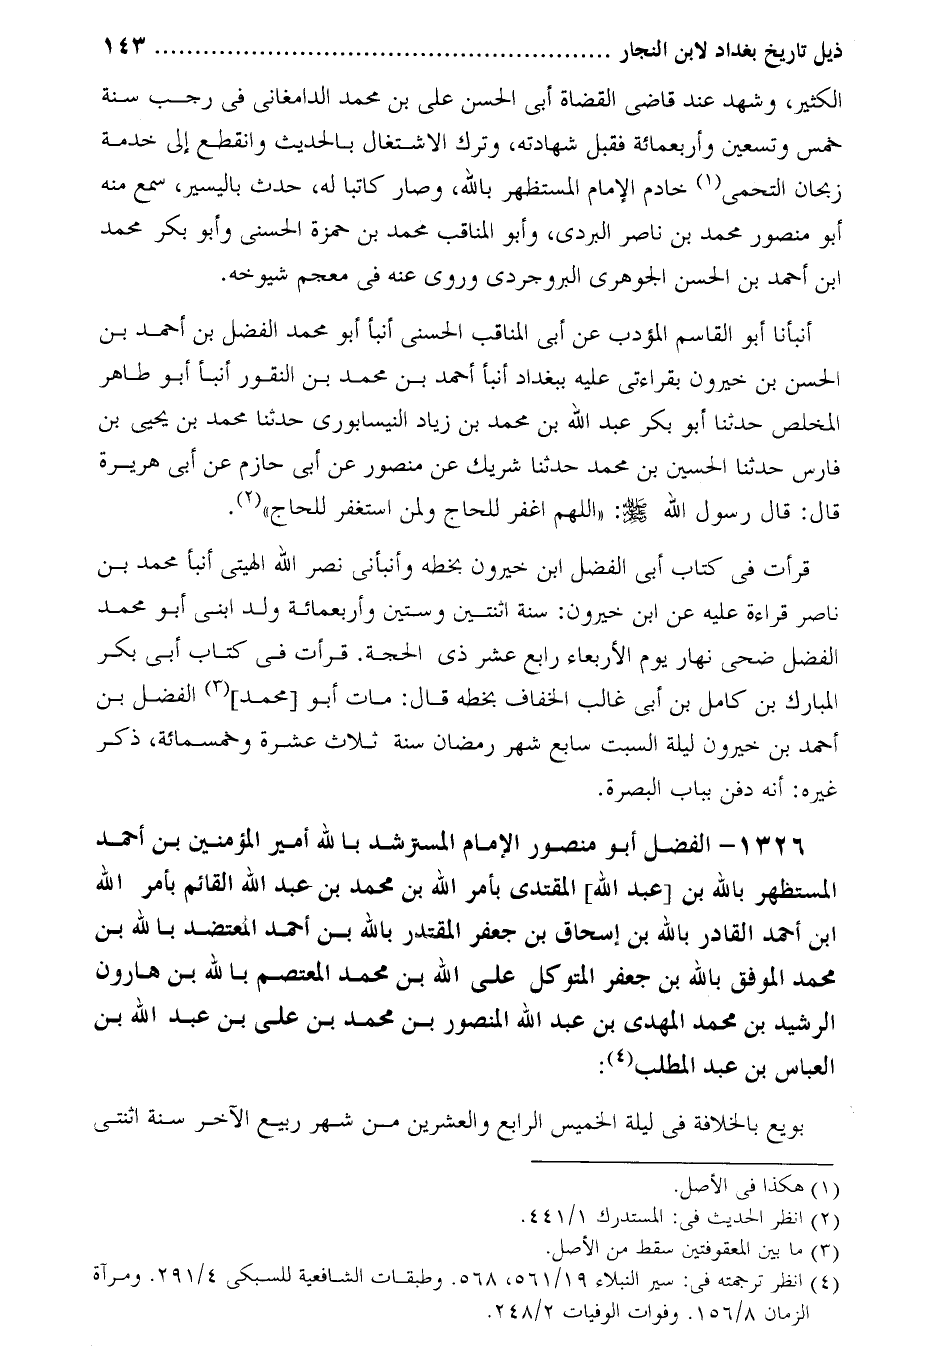 ذيل تاريخ بغداد لابن النجار ........................................................ ١٤٣
الكثير، وشهد عند قاضى القضاة أبى الحسن على بن محمد الدامغانى فى رجب سنة
خمس وتسعين وأربعمائة فقبل شهادته، وترك الاشتغال بالحديث وانقطع إلى خدمة
زبحان التحمى(١) خادم الإمام المستظهر بالله، وصار كاتبا له، حدث باليسير، سمع منه
أبو منصور محمد بن ناصر البردى، وأبو المناقب محمد بن حمزة الحسنى وأبو بكر محمد
ابن أحمد بن الحسن الجوهرى البروجردى وروى عنه فى معجم شيوخه.
أنبأنا أبو القاسم المؤدب عن أبى المناقب الحسنى أنبأ أبو محمد الفضل بن أحمد بن
الحسن بن خيرون بقراءتى عليه ببغداد أنبأ أحمد بن محمد بن النقور أنبأ أبو طاهر
المخلص حدثنا أبو بكر عبد الله بن محمد بن زياد النيسابورى حدثنا محمد بن يحيى بن
فارس حدثنا الحسين بن محمد حدثنا شريك عن منصور عن أبى حازم عن أبى هريرة
قال: قال رسول الله ﷺ: «اللهم اغفر للحاج ولمن استغفر للحاج»(٢).
قرأت فى كتاب أبى الفضل ابن خيرون بخطه وأنبأنى نصر الله الهيتى أنبأ محمد بن
ناصر قراءة عليه عن ابن خيرون: سنة اثنتين وستين وأربعمائة ولد ابنى أبو محمد
الفضل ضحى نهار يوم الأربعاء رابع عشر ذى الحجة. قرأت فى كتاب أبى بكر
المبارك بن كامل بن أبى غالب الخفاف بخطه قال: مات أبو [محمد](٣) الفضل بن
أحمد بن خيرون ليلة السبت سابع شهر رمضان سنة ثلاث عشرة وخمسمائة، ذكر
غيره: أنه دفن بباب البصرة.
١٣٢٦- الفضل أبو منصور الإمام المسترشد بالله أمير المؤمنين بن أحمد
المستظهر بالله بن [عبد الله] المقتدى بأمر الله بن محمد بن عبد الله القائم بأمر الله
ابن أحمد القادر بالله بن إسحاق بن جعفر المقتدر بالله بن أحمد المعتضد بالله بن
محمد الموفق بالله بن جعفر المتوكل على الله بن محمد المعتصم بالله بن هارون
الرشيد بن محمد المهدى بن عبد الله المنصور بن محمد بن على بن عبد الله بن
العباس بن عبد المطلب(٤):
بويع بالخلافة فى ليلة الخميس الرابع والعشرين من شهر ربيع الآخر سنة اثنتى
(١) هكذا فى الأصل.
(٢) انظر الحديث فى: المستدرك ٤٤١/١.
(٣) ما بين المعقوفتين سقط من الأصل.
(٤) انظر ترجمته فى: سير النبلاء ٥٦١/١٩، ٥٦٨. وطبقات الشافعية للسبكى ٢٩١/٤. ومرآة
الزمان ١٥٦/٨. وفوات الوفيات ٢٤٨/٢.